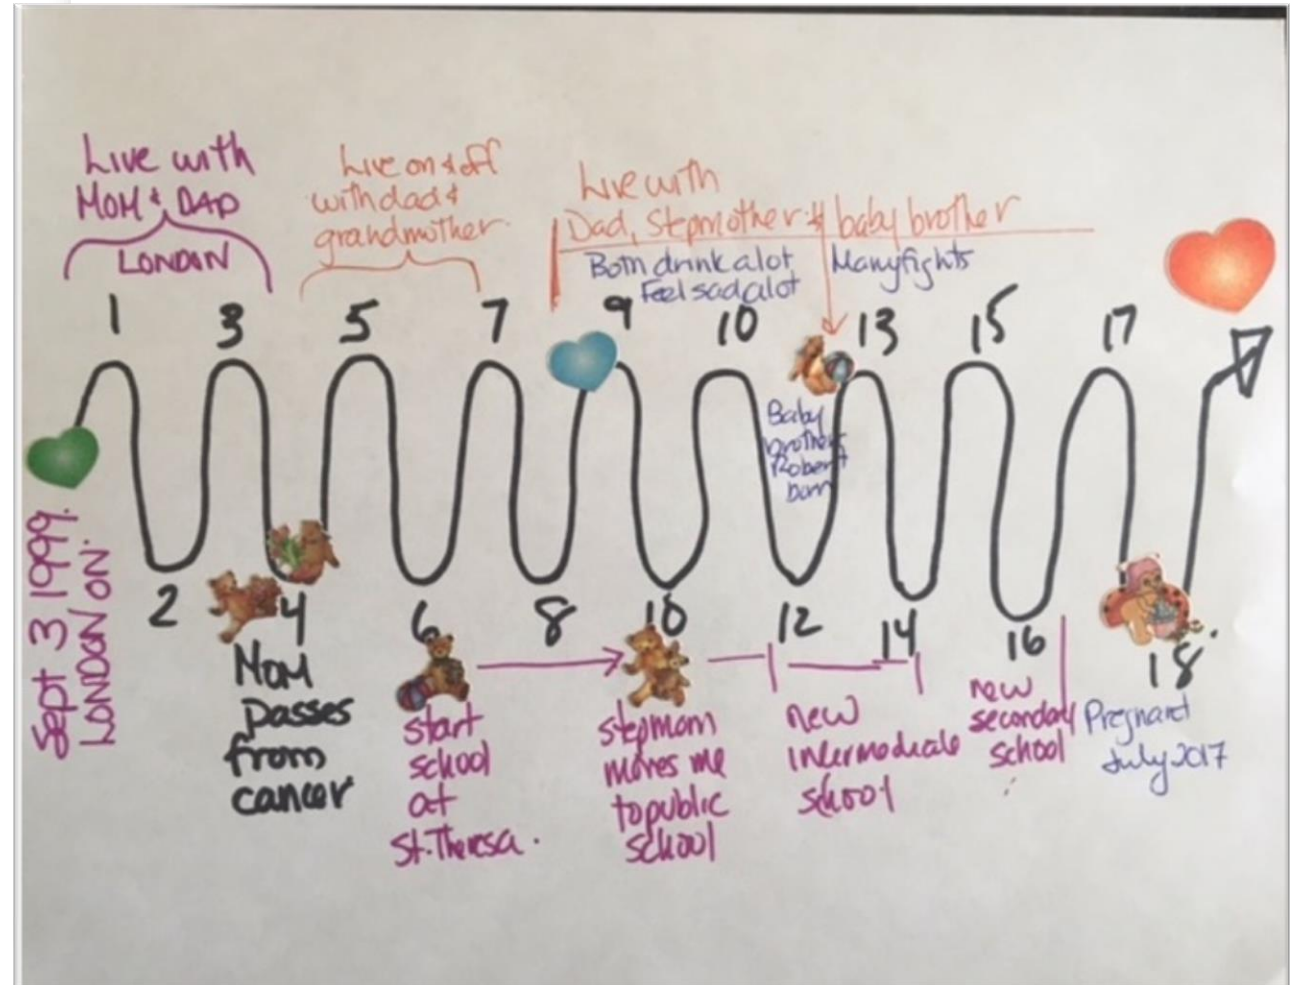 Live with
MOM & DAD
LONDON
Live on & off
with dad &
grandmother.
Live with
Dad, Stepmother & baby brother
Both drink alot
Feel sad alot
Many fights
1
3
5
7
9
10
13
15
17
Baby
brother
Robert
born
Sept 3 1999.
LONDON ON.
2
4
6
8
10
12
14
16
18.
Mom
passes
from
cancer
start
school
at
St. Theresa.
stepmom
moves me
to public
school
new
intermediate
school
new
secondary
school
Pregnant
July 2017